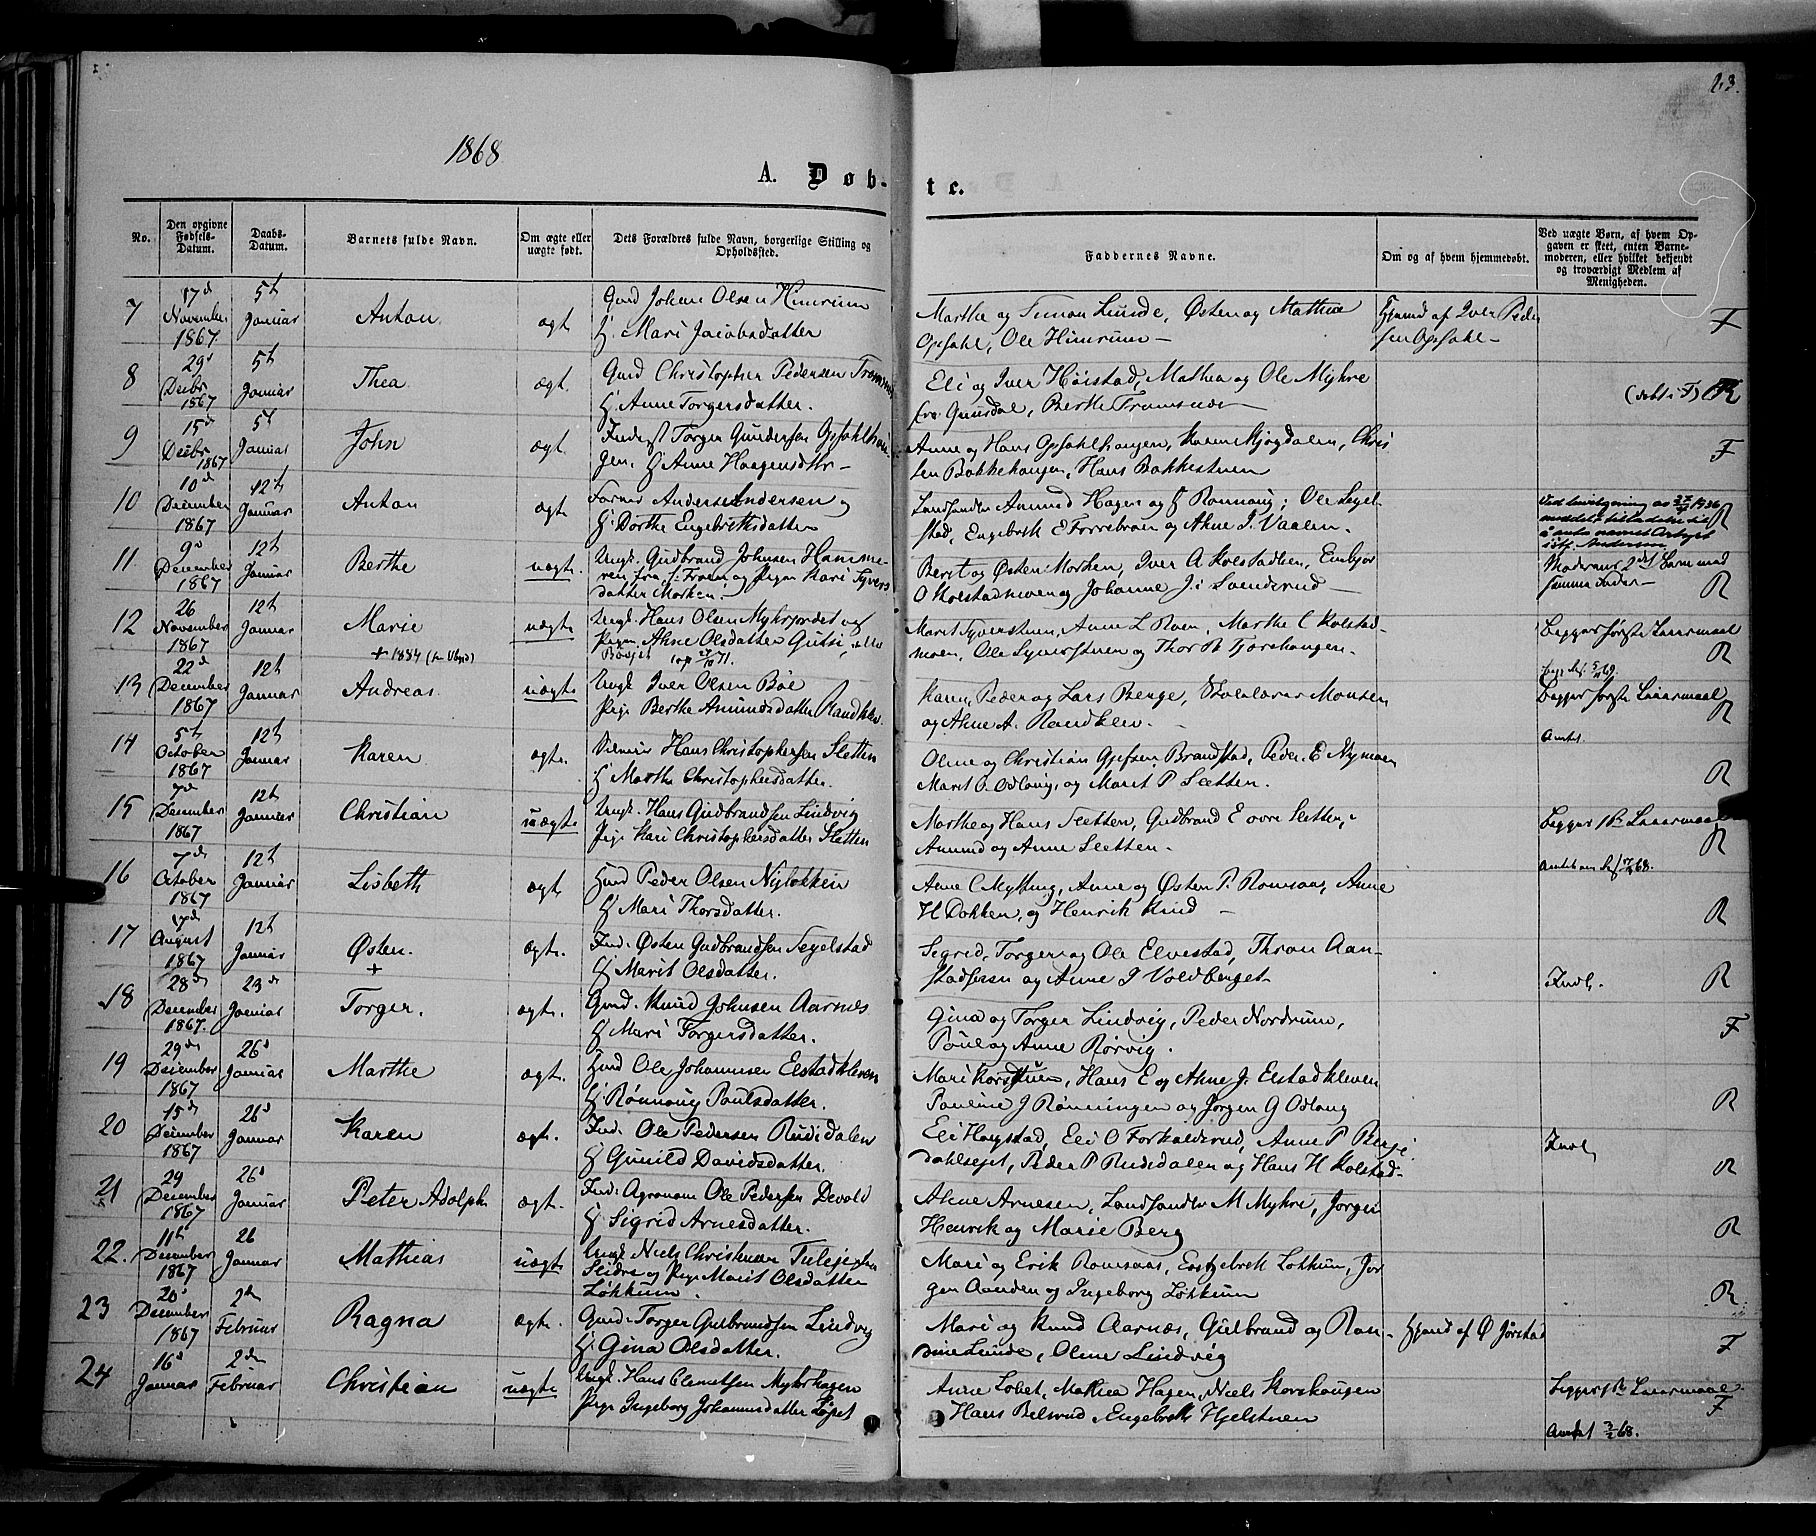 23.
1868
A. Døb-
te.
No.
Den opgivne Fødsels-Datum.
Daabs-Datum.
Barnets fulde Navn.
Om ægte eller uægte født.
Dets Forældres fulde Navn, borgerlige Stilling og Opholdssted.
Faddernes Navne.
Om og af hvem hjemmedøbt.
Ved uægte Børn, af hvem Op-
gaven er skeet, enten Barne-
moderen, eller hvilket bekjendt
og troværdigt Medlem af
Menigheden.
7 17d November 1867 5t Januar Anton ægt. Gmd Johan Olsen Himrum
H. Mari Jacobsdatter
Marthe og Simon Lunde, Østen og Mathea
Opsahl, Ole Himrum —
Hjemd af Iver Peder
sen Opsahl — F
8 29d Decbr 1867 5t Januar Thea ægt. Gmd Christopher Pedersen Tromsnæs
H. Anne Torgersdatter.
Eli og Iver Høistad, Mathea og Ole Myhre
fra Gausdal, Berthe Tromsnæs (døbt i F) R
9 15d Decbr 1867 5t Januar John ægt. Inderst Torger Gundersen Opsahlhau
gen. H. Anne Haagensdtr —
Anne og Hans Opsahlhaugen, Karen Mjogdalen, Chris
ten Bakkehaugen, Hans Bakkestuen F
10 10d December 1867 12t Januar Anton ægt Anders Andersen og
H. Dorthe Engebretsdatter
Landhandler Amund Hagen og H Rønnaug; Ole Segel-
stad, Engebret E Forrebraen og Ahne I. Vaalen. R
11 9d December 1867 12t Januar Berthe uægte. Ungk. Gudbrand Johnsen Hamme-
ren fra Froen og Pigen Kari Syvers
datter Morken.
Berit og Østen Morken, Iver A Kolstadlien, Embjør
O Kolstadmoen og Johanne J. Svenderud —
Moderens 2det Barn med
samme Fader — R
12 26 November 1867 12t Januar Marie uægte Ungk. Hans Olsen Myhrjordet og
Pigen Ahne Olsdatter
Marit Syverstuen, Anne L Roen, Marthe C Kolstad-
moen, Ole Syverstuen og Thor
Begges første Leiermaal R
+ 1884
13 22d December 1867 12t Januar Andreas uægte Ungk Iver Olsen Bøe
Pige Berthe Amundsdatter Randklev
Karen, Peder og Lars Berge, Skolelærer Monsen
og Ahne A. Randklev. —
Begges første Leiermaal R
Anmt.
14 5t October 1867 12t Januar Karen ægte. Hans Christophersen Sletten
H Marthe Christophersdatter.
Oline og Christian Gjefsen Brandstad, Peder E Nymoen
Marit O. Odlaug, og Marit P Sletten. R
15 7d December 1867 12t Januar Christian uægte Ungk. Hans Gudbrandsen Lindvig
Pige Kari Christophersdatter Sletten
Marthe og Hans Sletten, Gudbrand E øvre Sletten,
Amund og Anne Sletten — R
16 7d October 1867 12t Januar Lisbeth ægt Hmd Peder Olsen Nyløkken
H Mari Thorsdatter.
Anne C Mytting, Anne og Østen P. Romsaas, Anne
H Dokken, og Henrik Kind — R
17 17d August 1867 12t Januar Østen. ægte. Ind. Østen Gudbrandsen Segelstad
H Marit Olsdatter.
+
Sigrid, Torger og Ole Elvestad, Thron Aan-
stadsveen og Anne I Voldberget
Indl. R
18 28de December 1867. 23de Januar Torger. ægte. Gmd. Knud Johnsen Aarnes
H Mari Torgersdatter.
Gina og Torger Lindvig, Peder Nordrum,
Poul og Anne Rørvig. F
19 29de December 1867 26d Januar Marthe ægt. Hmd Ole Johannesen Elstadkleven
H. Rønnaug Poulsdatter.
Mari Korsstuen, Hans E og Ahne J. Elstadkleven
Pauline J Rønningen og Jørgen G Odlaug R
20 15de December 1867 26d Januar Karen ægt. Ind. Ole Pedersen Rudidalen
H Gunild Davidsdatter.
Eli Haystad, Eli O Forkalderud, Anne P Berge
Peder P Rudidalen og Hans H Kolstad —
Indl R
21 29 December 1867 26d Januar Peter Adolph ægt. Ind. Agronom Ole Pedersen Devold
H. Sigrid Arnesdatter.
Ahne Arnesen, Landhandler M Myhre, Jørgen
Henrik og Marie Berg R
22. 11t December 1867 26 Januar Mathias uægte Ungk Niels Christensen
Slidre og Pige Marit Olsdatter
Løkkum.
Mari og Erik Romsaas, Engebret Løkkum, Jør
gen Aanden og Ingeborg Løkkum R
23 20d December 1867 2den Februar Ragna ægte. Gmd. Torger Gulbrandsen Lindvig
H. Gina Olsdatter.
Mari og Knud Aarnæs, Gulbrand og Ran-
dine Lunde, Oline Lindvig
Hjemd af Ø Jørstad F
24 16d Januar 2den Februar Christian uægte Ungk. Hans Clemetsen Myhrhagen
Pige Ingeborg Johannesdatter Løpet
Anne Løbet, Mathea Hagen, Niels Korshaugen
Hans Belsrud, Engebreth Hjelstuen
Begges 1ste Leiermaal. F
Anmt 3/2 68.